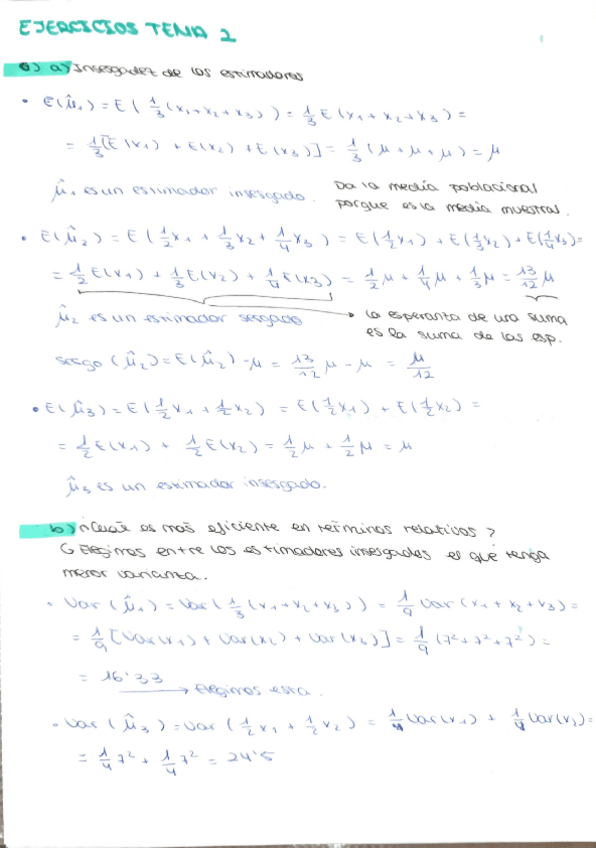 EJERCICIOS TEMA 2
a) Insesgadez de los estimadores
• E(μ̂₁) = E(1/3(x₁+x₂+x₃)) = 1/3 E(x₁+x₂+x₃) =
= 1/3 [E(x₁) + E(x₂) + E(x₃)] = 1/3 (μ + μ + μ) = μ
μ̂₁ es un estimador insesgado. Da la media poblacional
porque es la media muestral.
• E(μ̂₂) = E(1/2 x₁ + 1/3 x₂ + 1/4 x₃) = E(1/2 x₁) + E(1/3 x₂) + E(1/4 x₃) =
= 1/2 E(x₁) + 1/3 E(x₂) + 1/4 E(x₃) = 1/2 μ + 1/4 μ + 1/3 μ = 13/12 μ
μ̂₂ es un estimador sesgado → la esperanza de una suma
es la suma de las esp.
sesgo (μ̂₂) = E(μ̂₂) - μ = 13/12 μ - μ = μ/12
• E(μ̂₃) = E(1/2 x₁ + 1/2 x₂) = E(1/2 x₁) + E(1/2 x₂) =
= 1/2 E(x₁) + 1/2 E(x₂) = 1/2 μ + 1/2 μ = μ
μ̂₃ es un estimador insesgado.
b) ¿Cuál es más eficiente en términos relativos?
Elegimos entre los estimadores insesgados el que tenga
menor varianza.
• Var(μ̂₁) = Var(1/3 (x₁+x₂+x₃)) = 1/9 Var(x₁ + x₂ + x₃) =
= 1/9 [Var(x₁) + Var(x₂) + Var(x₃)] = 1/9 (7² + 7² + 7²) =
= 16'33
→ Elegimos esta.
• Var(μ̂₃) = Var(1/2 x₁ + 1/2 x₂) = 1/4 Var(x₁) + 1/4 Var(x₂) =
= 1/4 7² + 1/4 7² = 24'5